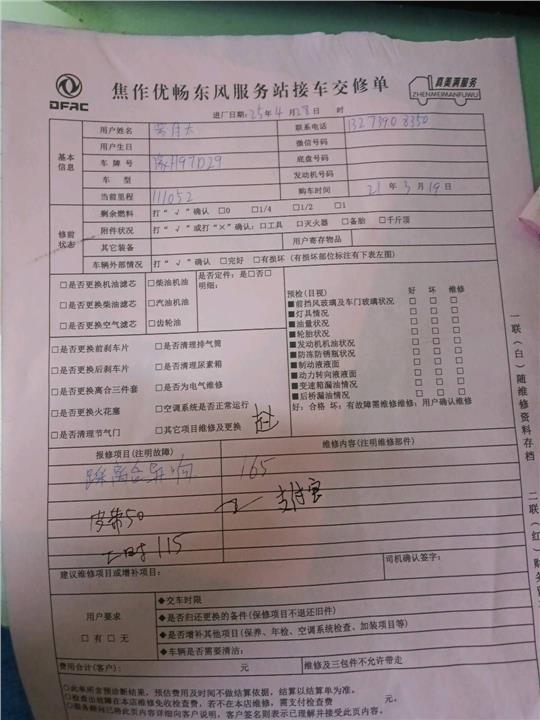 DFAC
焦作优畅东风服务站接车交修单
真美满服务
ZHENMEIMANFUWU
进厂日期:25年4月28日 时
基本信息
用户姓名 联系电话 13273908350
用户生日 微信号码
车牌号 豫H97D29 底盘号码
车型 发动机号码
当前里程 111052 购车时间 21年3月19日
修前状态
剩余燃料 打“√”确认 □0 □1/4 □1/2 □1
附件状况 打“√”或打“×”确认:□工具 □灭火器 □备胎 □千斤顶
其它装备 用户寄存物品
车辆外部情况 打“√”确认 □完好 □有损坏(有损坏部位标注有下表左图)
□是否更换机油滤芯 □柴油机油 是否定件:是□否□
明细:
□是否更换柴油滤芯 □汽油机油
□是否更换空气滤芯 □齿轮油
□是否更换前刹车片 □是否清理排气筒
□是否更换后刹车片 □是否清理尿素箱
□是否更换离合三件套 □是否为电气维修
□是否更换火花塞 □空调系统是否正常运行
□是否清理节气门 □其它项目维修及更换
预检(目视) 好 坏 维修
■前挡风玻璃及车门玻璃状况 □ □ □
■灯具情况 □ □ □
■油量状况 □ □ □
■轮胎状况 □ □ □
■发动机机油状况 □ □ □
■防冻防锈瓶状况 □ □ □
■制动液液面 □ □ □
■动力转向液液面 □ □ □
■变速箱漏油情况 □ □ □
■后桥漏油情况 □ □ □
好:合格 坏:有故障需维修维修:用户确认维修
报修项目(注明故障) 维修内容(注明维修部件)
踩离合异响 165
皮带50 支付宝
工时115
建议维修项目或增补项目: 司机确认签字:
用户要求
□有□无
◆交车时限
◆是否归还更换的备件(保修项目不退还旧件)
◆是否增补其他项目(保养、年检、空调系统检查、加装项目等)
◆车辆是否需要清洁:
费用合计(客户): 元 维修及三包件不允许带走
○此单所含预诊断结果,预估费用及时间不做结算依据,结算以结算单为准。
○检查出故障在本店维修免收检查费,若不在本店维修,需支付检查费 元。
○服务顾问已将此页内容详细向客户说明,客户签名则表示已理解并接受此页内容。
一联(白)随维修资料存档
二联(红)